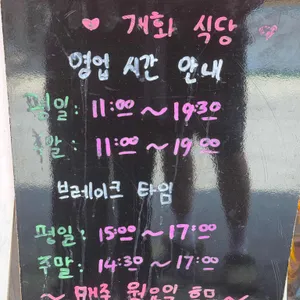 ♥ 개화 식당 ♥
영업 시간 안내
평일: 11:00 ~ 19:30
주말: 11:00 ~ 19:00
브레이크 타임
평일: 15:00 ~ 17:00
주말: 14:30 ~ 17:00
~ 매주 월요일 휴무 ~